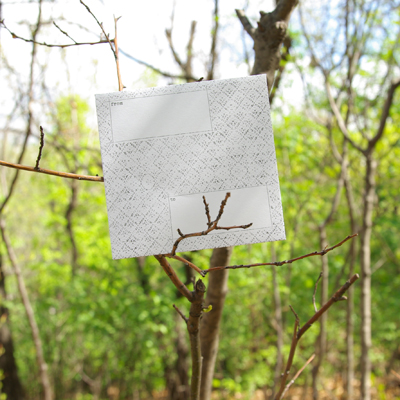 From
To